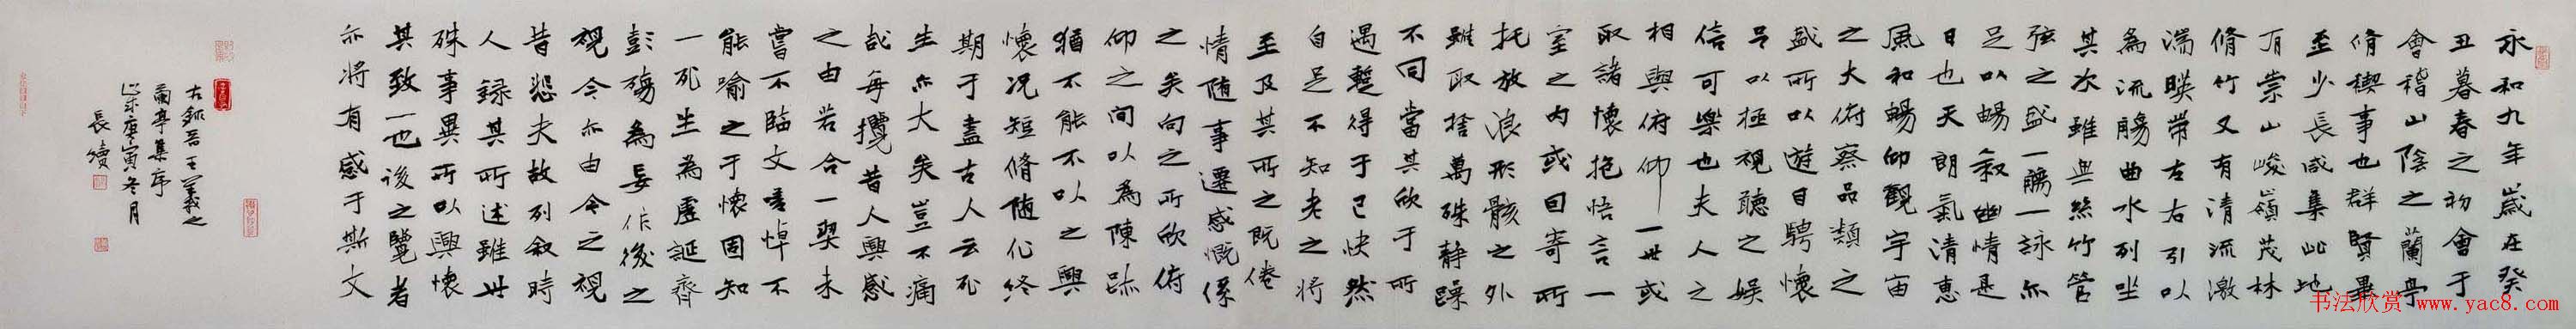 永和九年歲在癸
丑暮春之初會于
會稽山陰之蘭亭
脩禊事也群賢畢
至少長咸集此地
有崇山峻嶺茂林
脩竹又有清流激
湍暎帶左右引以
為流觴曲水列坐
其次雖無絲竹管
弦之盛一觴一詠亦
足以暢敘幽情是
日也天朗氣清惠
風和暢仰觀宇宙
之大俯察品類之
盛所以遊目騁懷
足以極視聽之娛
信可樂也夫人之
相與俯仰一世或
取諸懷抱悟言一
室之內或因寄所
托放浪形骸之外
雖取捨萬殊静躁
不同當其欣于所
遇蹔得于己快然
自足不知老之將
至及其所之既倦
情隨事遷感慨係
之矣向之所欣俯
仰之間以為陳跡
猶不能不以之興
懷况短脩隨化終
期于盡古人云死
生亦大矣豈不痛
哉每攬昔人興感
之由若合一契未
嘗不臨文嗟悼不
能喻之于懷固知
一死生為虛誕齊
彭殤為妄作後之
視今亦由今之視
昔悲夫故列叙時
人録其所述雖世
殊事異所以興懷
其致一也後之覽者
亦将有感于斯文
右錄晉王羲之
蘭亭集序
庚寅冬月
長續
书法欣赏 www.yac8.com